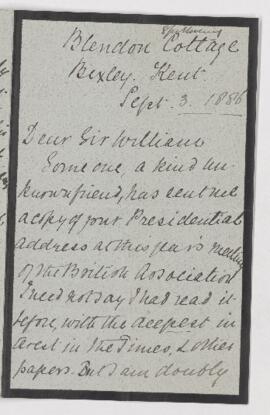 Blendon Cottage
Bexley. Kent.
Sept. 3. 1886
Dear Sir William
Some one, a kind un-
known friend, has sent me
a copy of your Presidential
address at this year's meeting
of the British Association
I need not say I had read it
before, with the deepest in
terest in the Times, & other
papers. But I am doubly